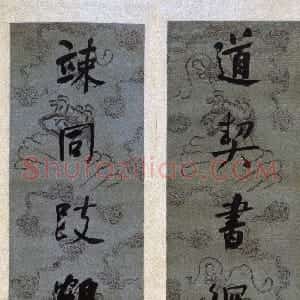 道契書
竦同跂
Shufaziliao.com